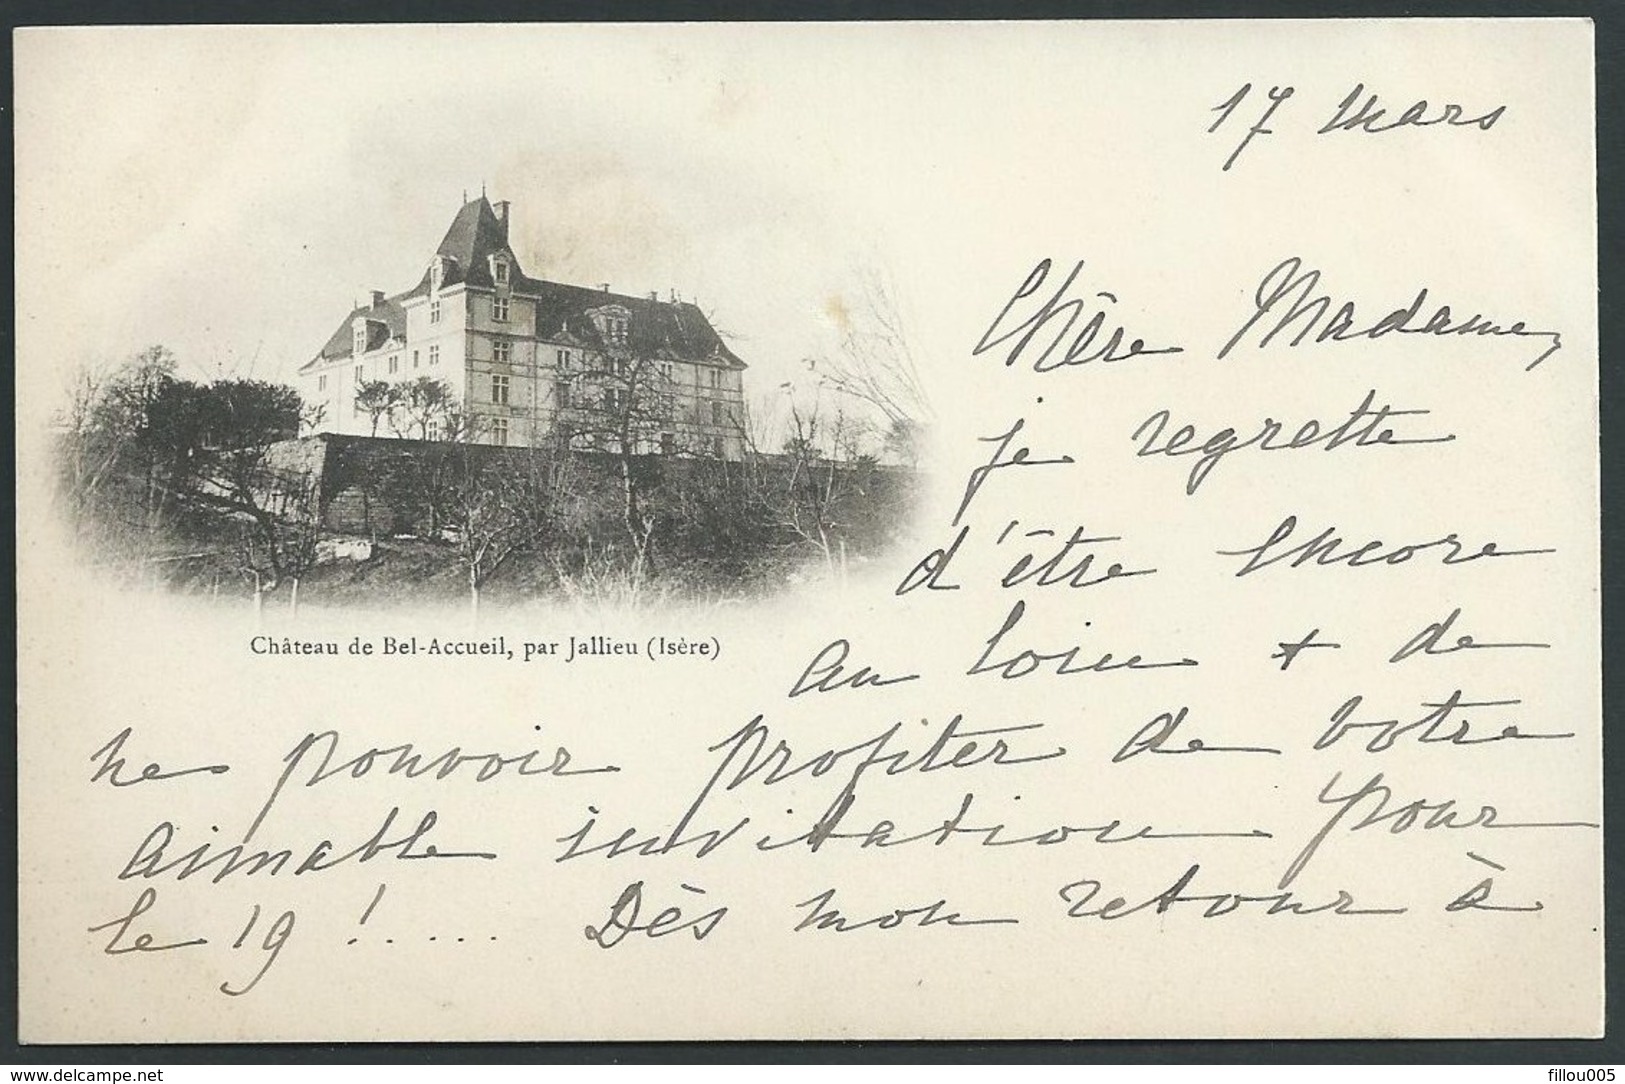 17 Mars
Chère Madame,
je regrette
d'être encore
au loin + de
Château de Bel-Accueil, par Jallieu (Isère)
ne pouvoir profiter de votre
aimable invitation pour
le 19 !.....  Dès mon retour à
delcampe.net
fillou005